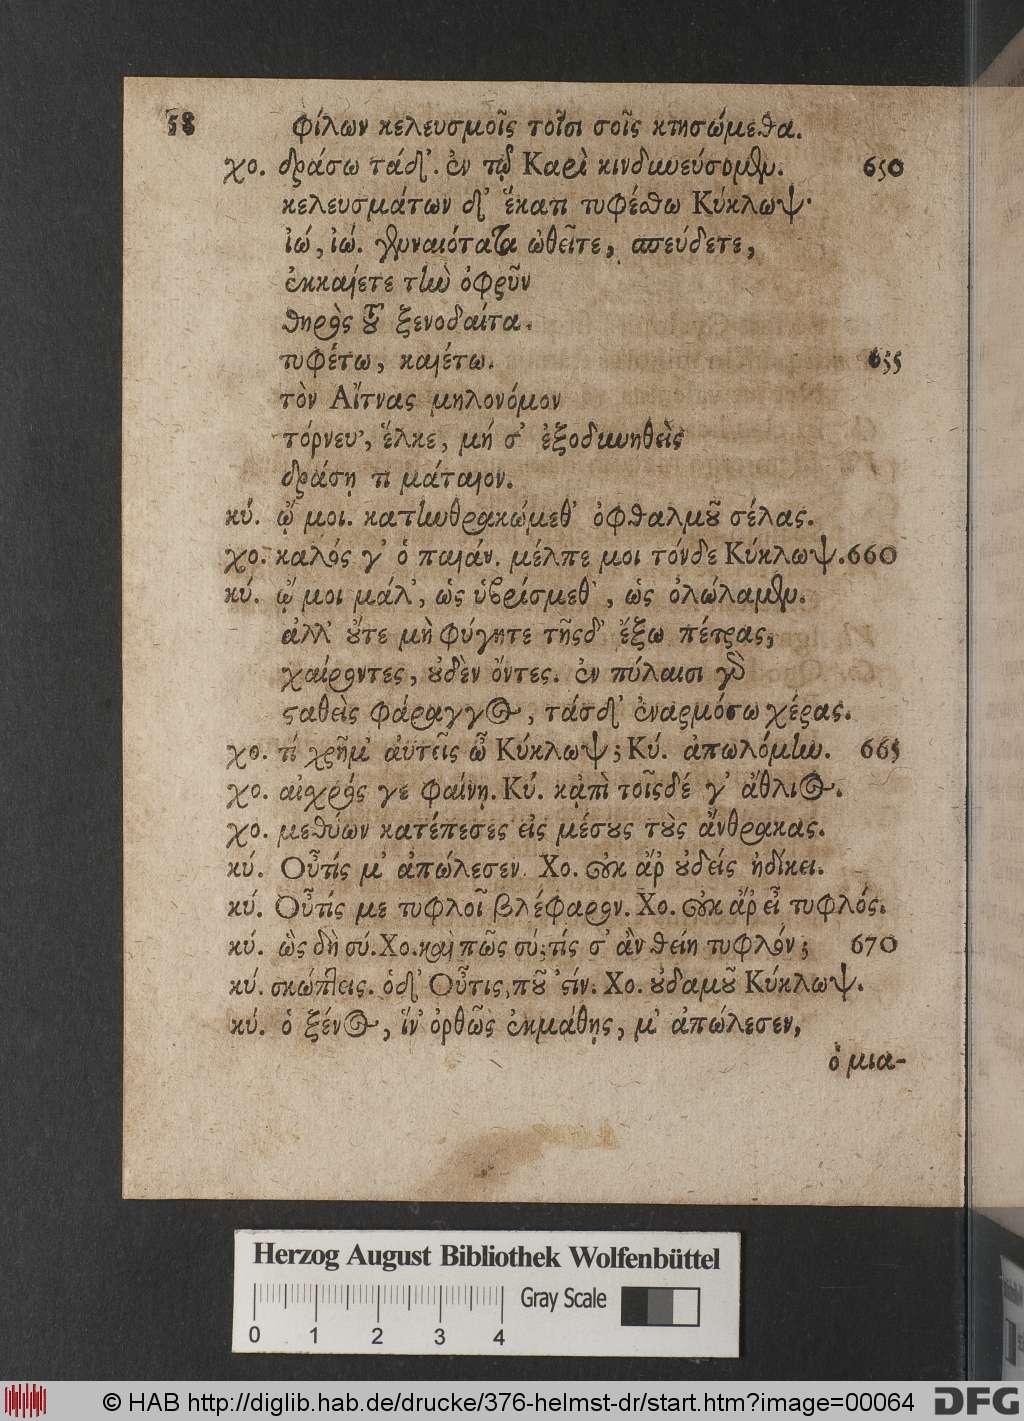 58 φίλων κελευσμοῖς τοῖσι σοῖς κτησώμεθα.
χο. δράσω τάδ᾽. ἐν τῷ Καρὶ κινδυνεύσομεν. 650
κελευσμάτων δ᾽ ἕκατι τυφέσθω Κύκλωψ·
ἰώ, ἰώ. γενναιότατα ὠθεῖτε, σπεύδετε,
ἐκκαίετε τὴν ὀφρῦν
θηρὸς τοῦ ξενοδαίτα.
τυφέτω, καιέτω. 655
τὸν Αἴτνας μηλονόμον
τόρνευ᾽, ἕλκε, μή σ᾽ ἐξοδυνηθεὶς
δράσῃ τι μάταιον.
κύ. ᾤ μοι. κατηνθρακώμεθ᾽ ὀφθαλμοῦ σέλας.
χο. καλός γ᾽ ὁ παιάν. μέλπε μοι τόνδε Κύκλωψ. 660
κύ. ᾤ μοι μάλ᾽, ὡς ὑβρίσμεθ᾽, ὡς ὀλώλαμεν.
ἀλλ᾽ οὔτε μὴ φύγητε τῆσδ᾽ ἔξω πέτρας,
χαίροντες, οὐδὲν ὄντες. ἐν πύλαισι γὰρ
σταθεὶς φάραγγος, τάσδ᾽ ἐναρμόσω χέρας.
χο. τί χρῆμ᾽ ἀυτεῖς ὦ Κύκλωψ; Κύ. ἀπωλόμην. 665
χο. αἰσχρός γε φαίνῃ. Κύ. κᾀπὶ τοῖςδέ γ᾽ ἄθλιος.
χο. μεθύων κατέπεσες εἰς μέσους τοὺς ἄνθρακας.
κύ. Οὖτίς μ᾽ ἀπώλεσεν. Χο. οὐκ ἄρ᾽ οὐδείς ἠδίκει.
κύ. Οὖτίς με τυφλοῖ βλέφαρον. Χο. οὐκ ἄρ᾽ εἶ τυφλός.
κύ. ὣς δὴ σύ. Χο. καὶ πῶς σύ; τίς σ᾽ ἂν θείη τυφλόν; 670
κύ. σκώπτεις. ὁδ᾽ Οὖτις, ποῦ ᾽στίν. Χο. οὐδαμοῦ Κύκλωψ.
κύ. ὁ ξένος, ἵν᾽ ὀρθῶς ἐκμάθῃς, μ᾽ ἀπώλεσεν,
ὁ μια-
Herzog August Bibliothek Wolfenbüttel
0 1 2 3 4 Gray Scale
© HAB http://diglib.hab.de/drucke/376-helmst-dr/start.htm?image=00064 DFG